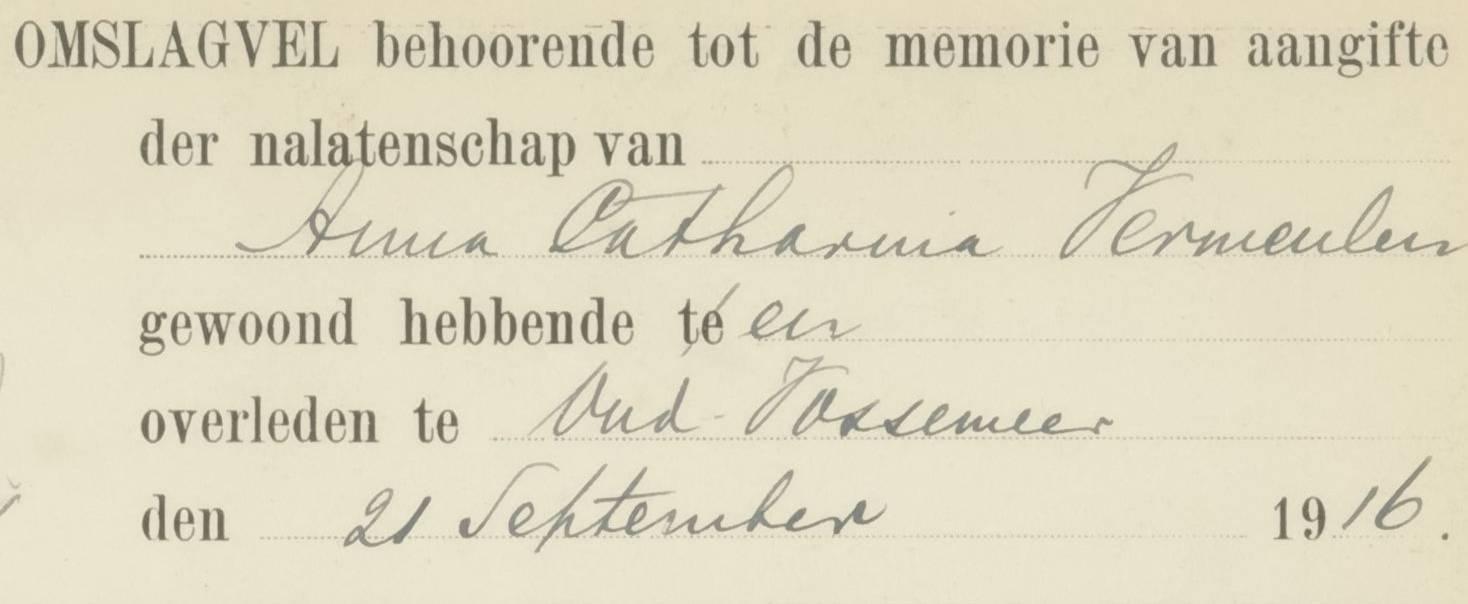 OMSLAGVEL behoorende tot de memorie van aangifte
der nalatenschap van
Anna Catharina Vermeulen
gewoond hebbende te en
overleden te Oud-Vossemeer
den 21 September 1916.